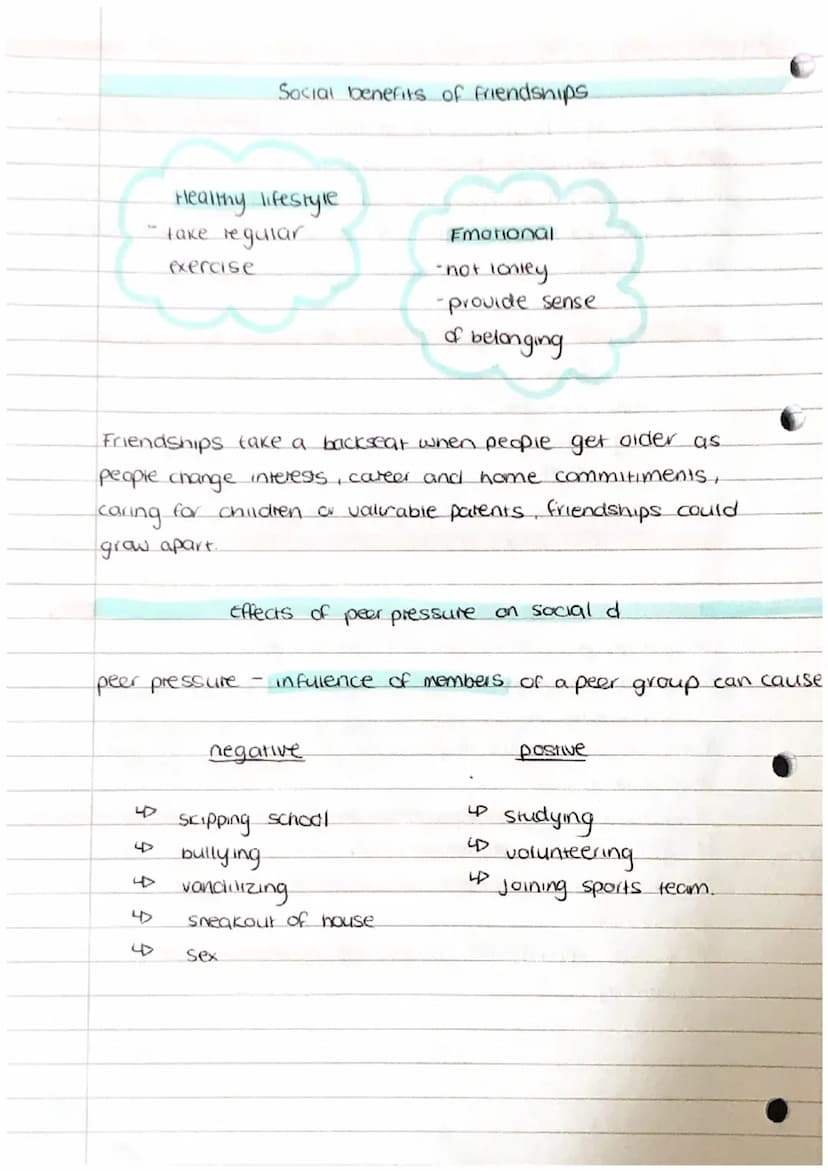 Social benefits of friendships
Healthy lifestyle
- take regular
exercise
Emotional
- not lonley
- provide sense
of belonging
Friendships take a backseat when people get older as
people change interess, career and home commitiments,
caring for children or valurable parents, friendships could
grow apart.
Effects of peer pressure on social d
peer pressure - infulence of members of a peer group can cause
negative
postive
↳ scipping school
↳ bullying
↳ vandilizing
↳ sneakout of house
↳ sex
↳ studying
↳ volunteering
↳ joining sports team.